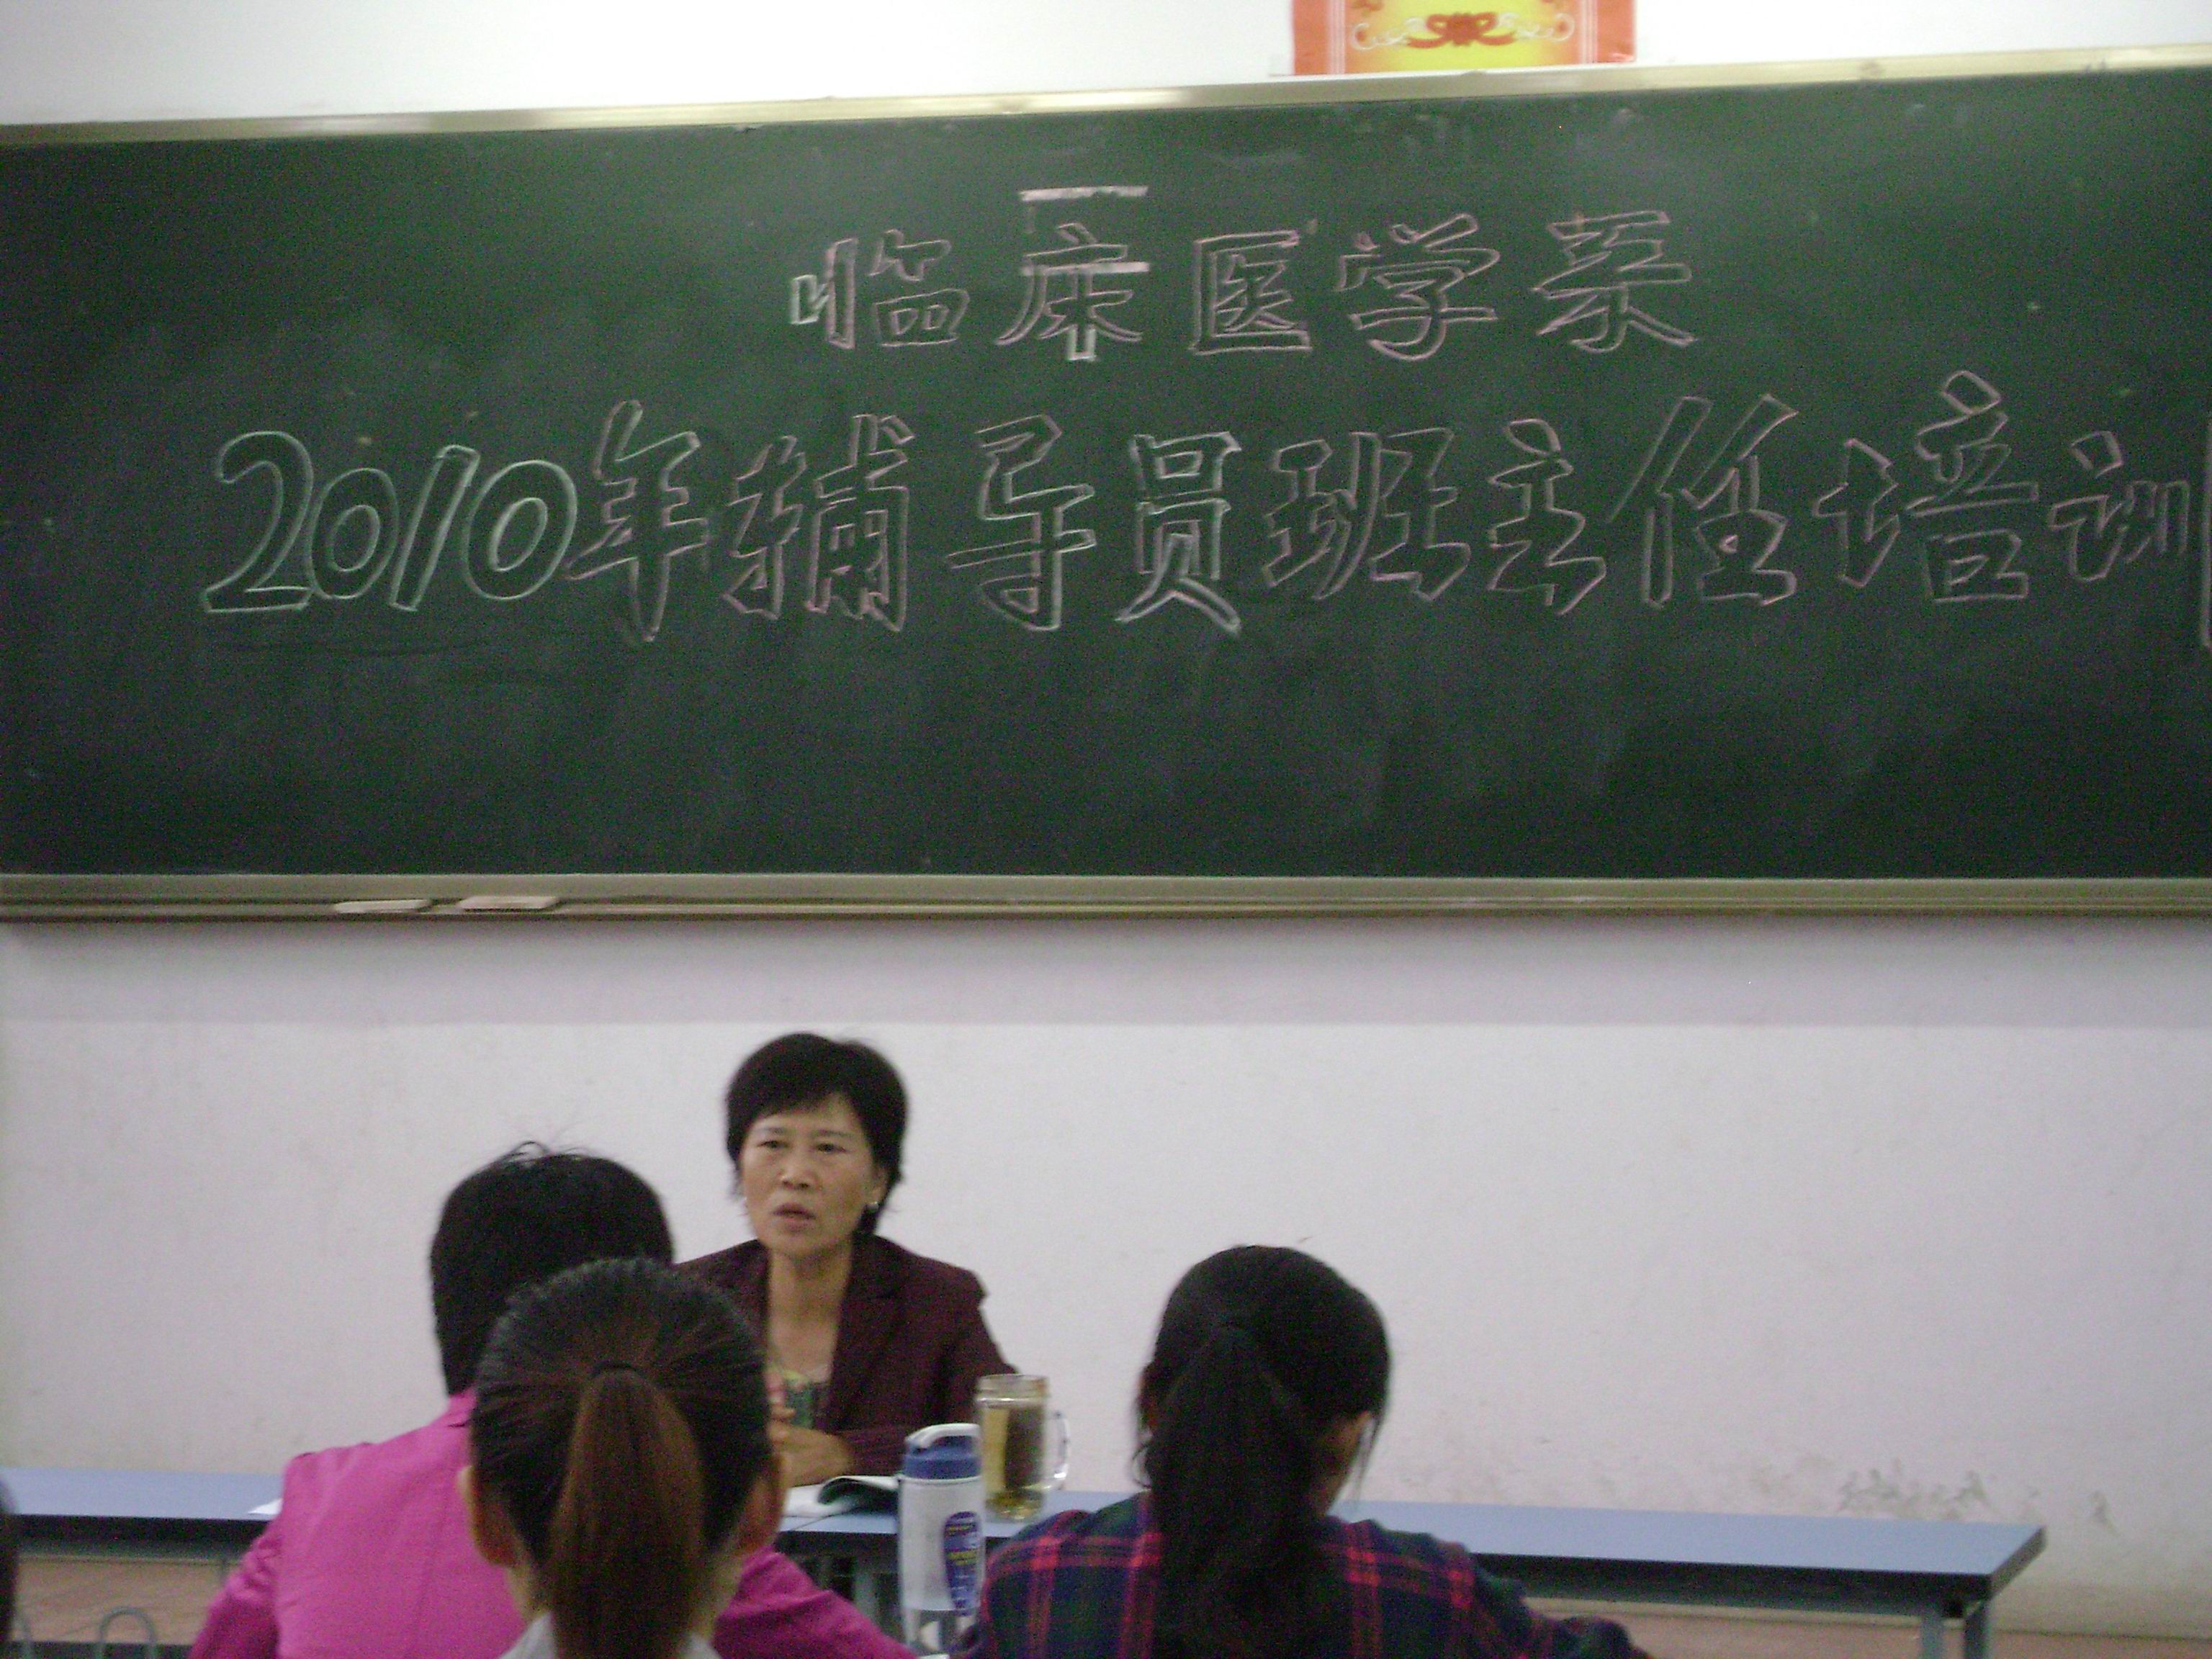 临床医学系
2010年辅导员班主任培训